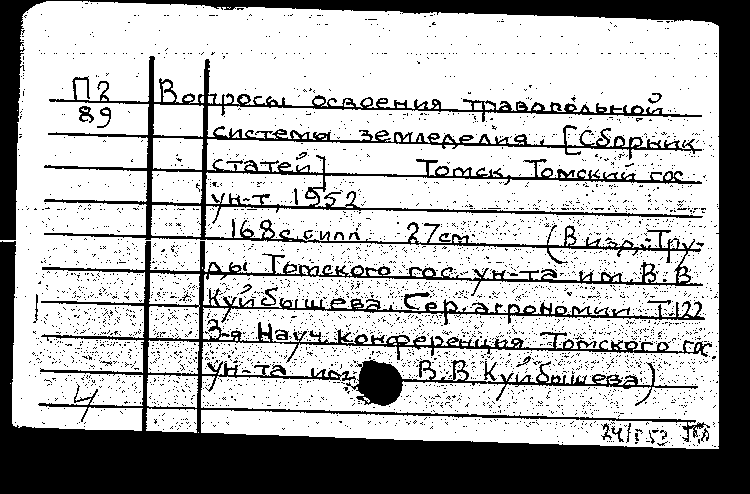 П2 Вопросы освоения травопольной
89 системы земледелия. [Сборник
статей] Томск, Томский гос
ун-т, 1952
168 с. с илл. 27 см (В изд.: Тру-
ды Томского гос. ун-та им. В. В
Куйбышева. Сер. агрономии. Т. 122
3-я Науч. конференция Томского гос.
ун-та им. В. В Куйбышева)
4